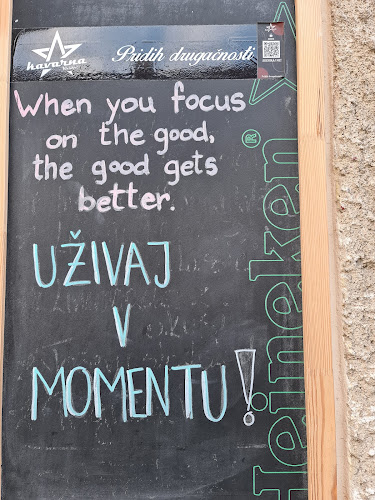 kavarna
Pridih drugačnosti
When you focus
on the good,
the good gets
better.
UŽIVAJ
V
MOMENTU!
Heineken®